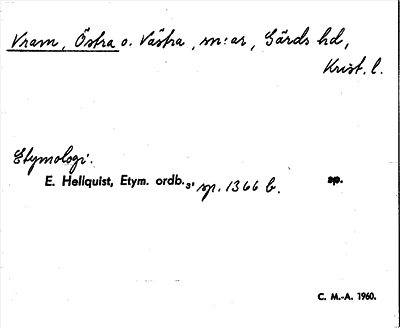 Vram, Östra o. Västra, sn:ar, Gärds hd,
Krist. l.
Etymologi.
E. Hellquist, Etym. ordb.3, sp. 1366 b. sp.
C. M.-A. 1960.